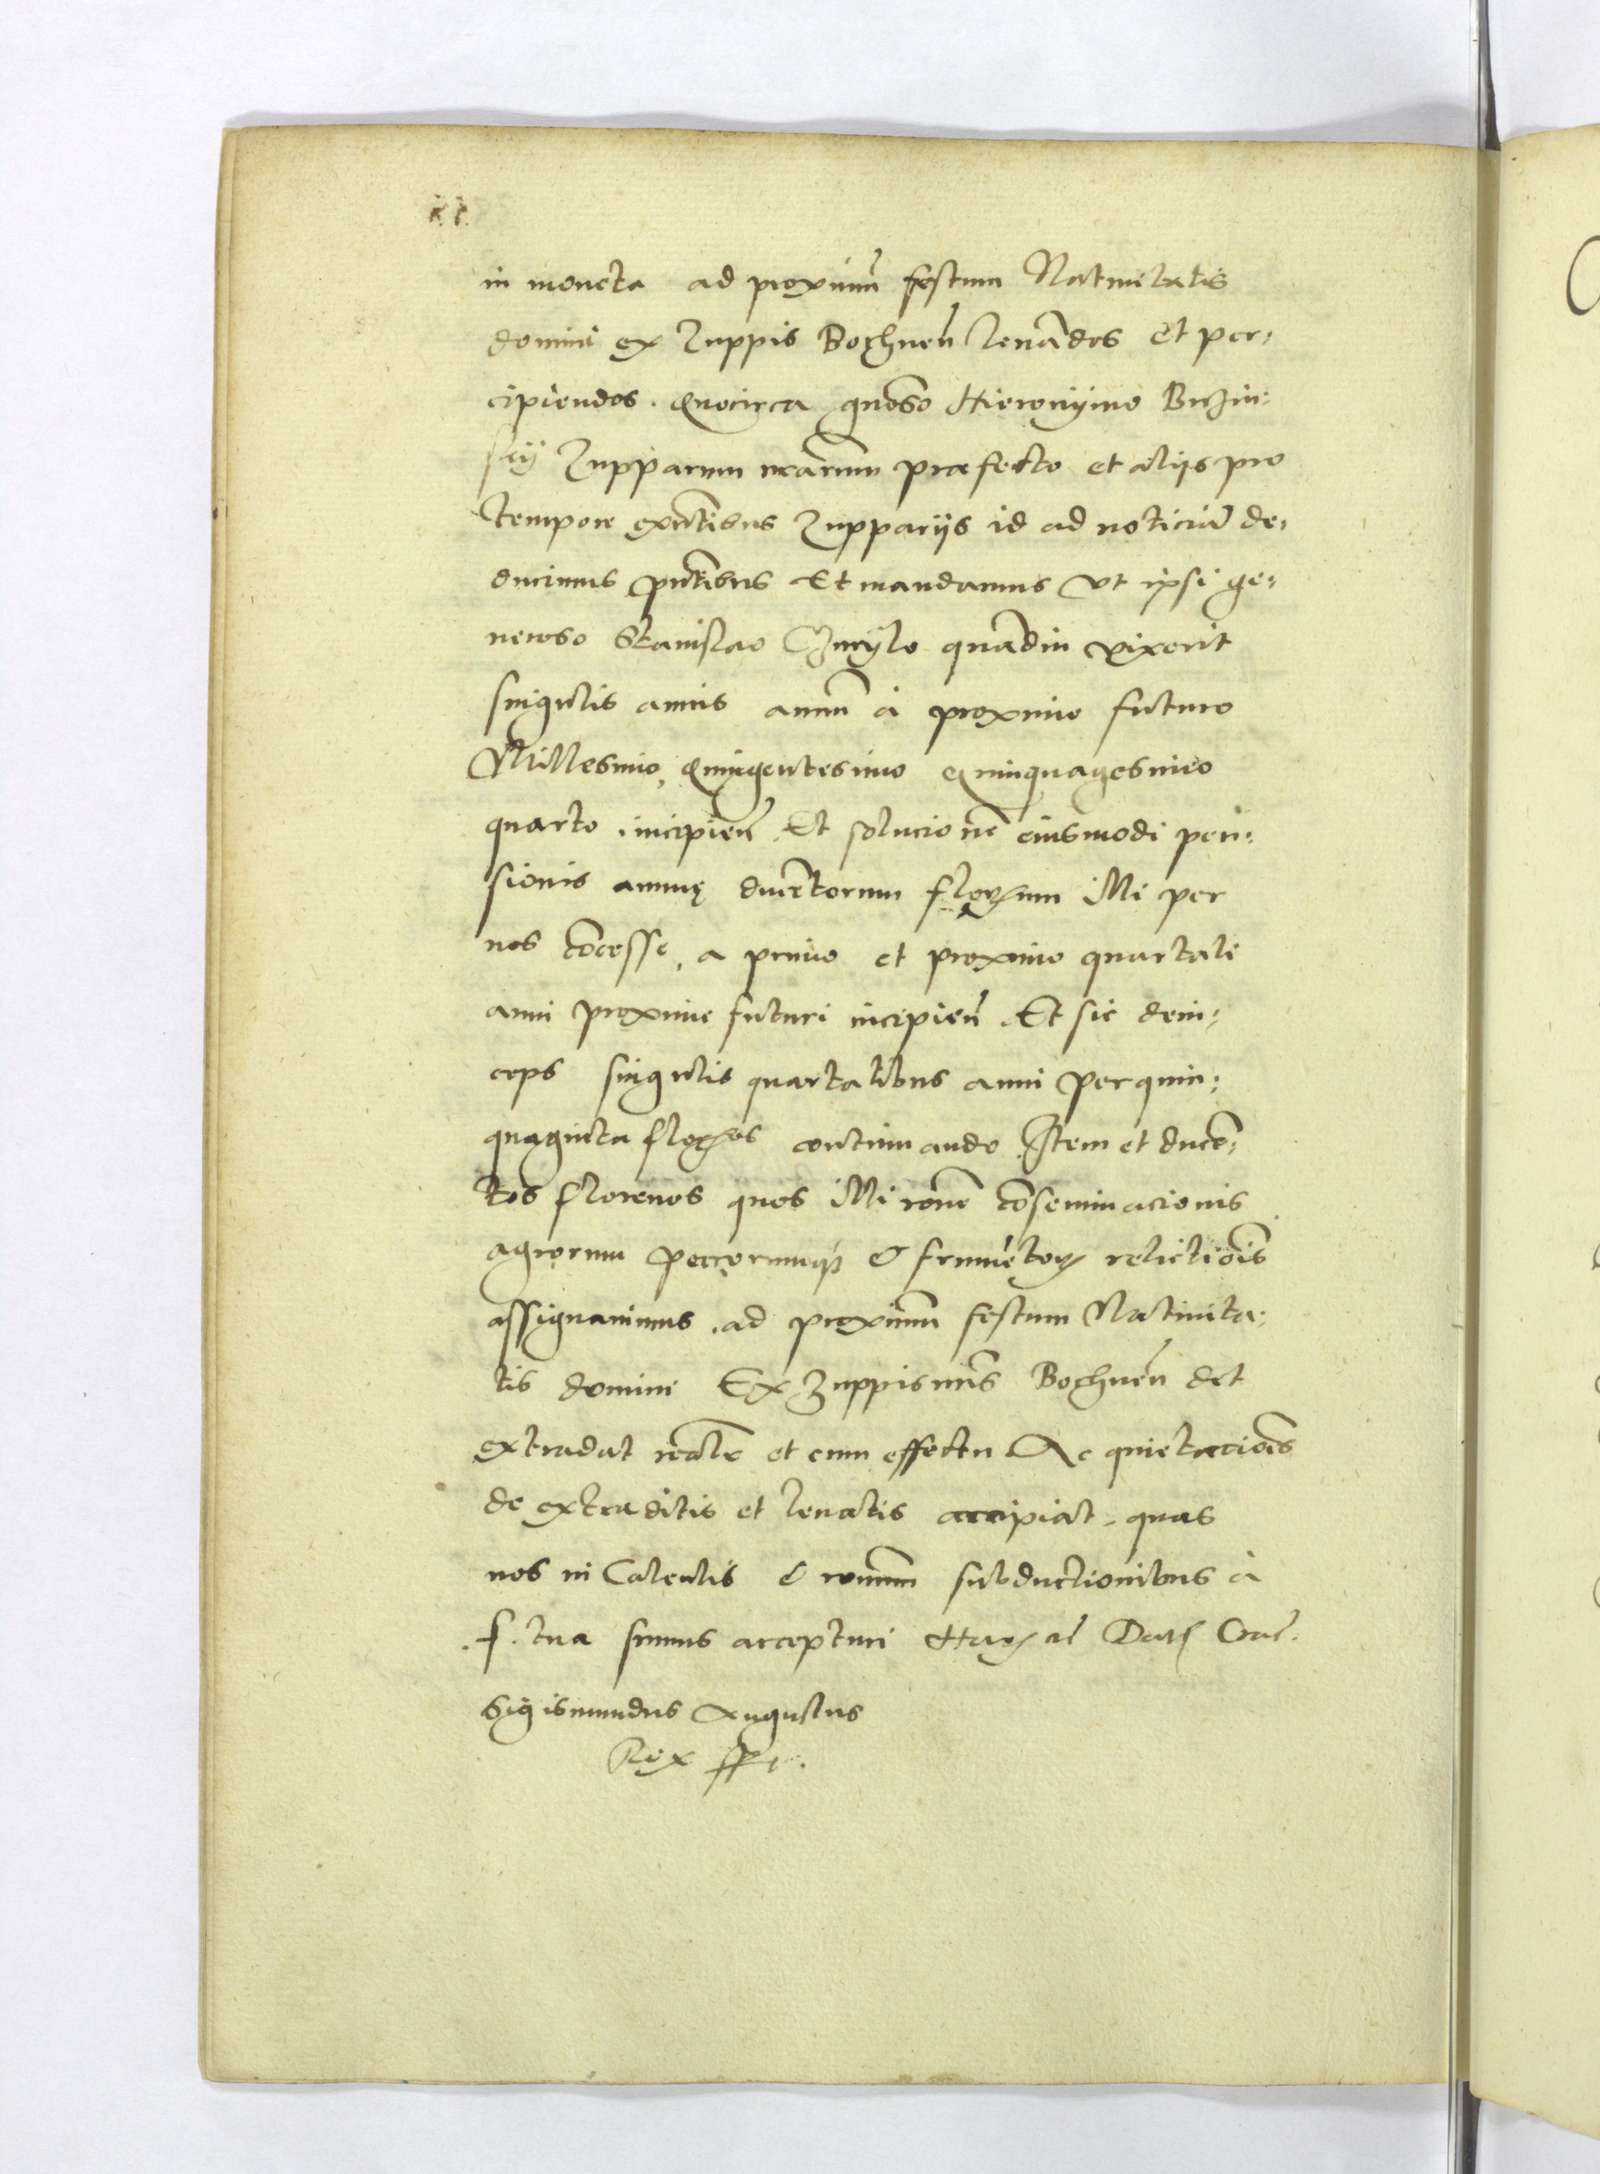 in moneta ad proximū festum Natiuitatis
domini ex Zuppis Bochneñ leuādos et per:
cipiendos. Quocirca gnoso Hieronijmo Buzin:
skij Zupparum nrārum præfecto et alijs pro
tempore exn̄tibus Zupparijs id ad noticiā de:
ducimus pn̄tibus Et mandamus vt ipsi ge:
neroso Stanislao quādiu vixerit
singulis annis annū à proximo futuro
Millesimo, Quingentesimo quinquagesimo
quarto incipien̄. Et solucionē eiusmodi pen:
sionis annuę ducētorum florenum illi per
nos cōcesse, a primo et proximo quartali
anni proxime futuri incipien̄. Et sic dein:
ceps singulis quartalibus anni per quin:
quaginta flornos continuando Item et ducē:
tos florenos quos illi ronē cōseminacionis
agrorum peccorumq̃ & frumētor relictiōis
assignauimus, ad proximū festum Natiuita:
tis domini Ex Zuppis nr̄is Bochneñ det
extradat realr̄ et cum effectu Ac quietacioēs
de extraditis et leuatis accipiat, quas
nos in Calculis & ronum subductionibus à
f. tua sumus accepturi Har etc Dat Crac.
Sigismundus Augustus
Rex sst.